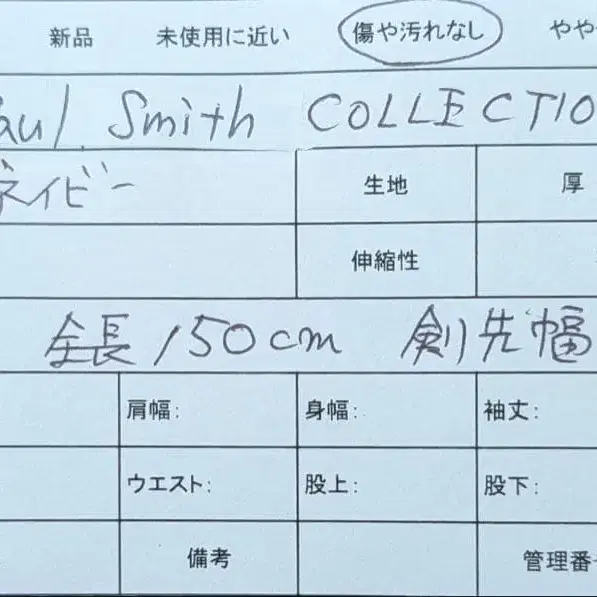 新品 未使用に近い 傷や汚れなし やや
Paul Smith COLLECTIO
ネイビー 生地 厚
伸縮性
全長 150cm 剣先幅
肩幅: 身幅: 袖丈:
ウエスト: 股上: 股下:
備考 管理番